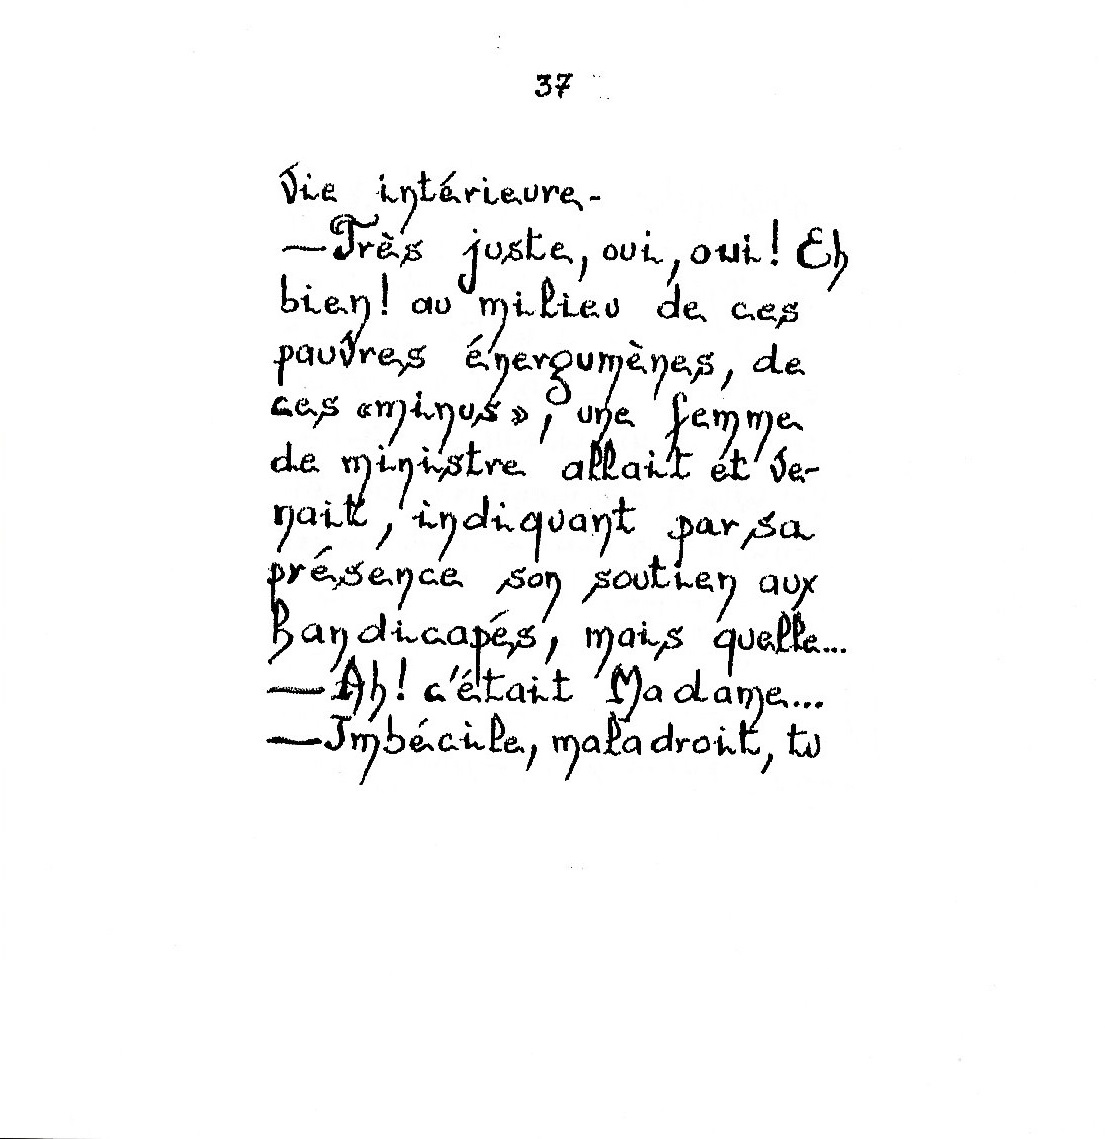 37
Vie intérieure-
—Très juste, oui, oui! Eh
bien! au milieu de ces
pauvres énergumènes, de
ces «minus», une femme
de ministre allait et ve-
nait, indiquant par sa
présence son soutien aux
handicapés, mais quelle...
—Ah! c'était Madame...
—Imbécile, maladroit, tu